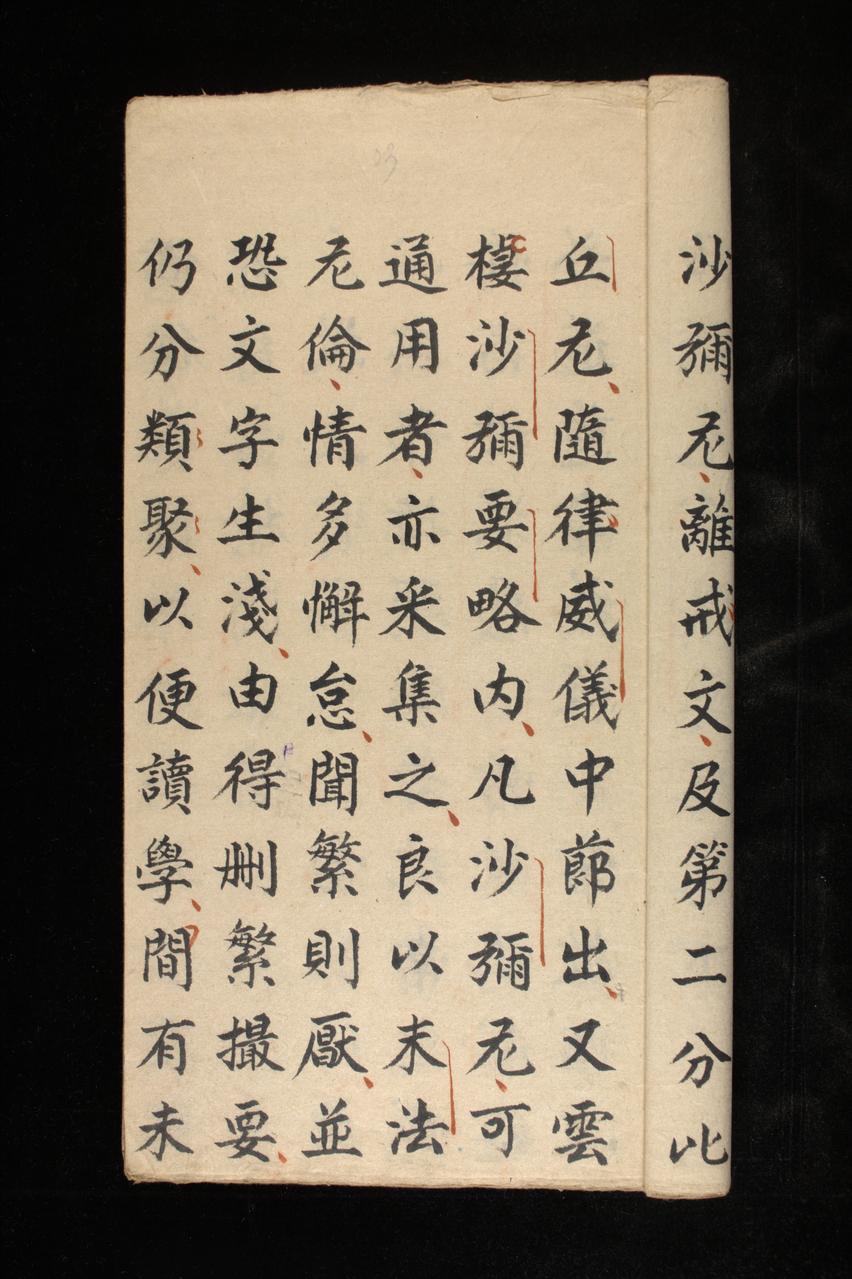 沙彌尼離戒文及第二分比
丘尼隨律威儀中節出又雲
棲沙彌要略內凡沙彌尼可
通用者亦采集之良以末法
尼倫情多懈怠聞繁則厭並
恐文字生淺由得刪繁撮要
仍分類聚以便讀學間有未